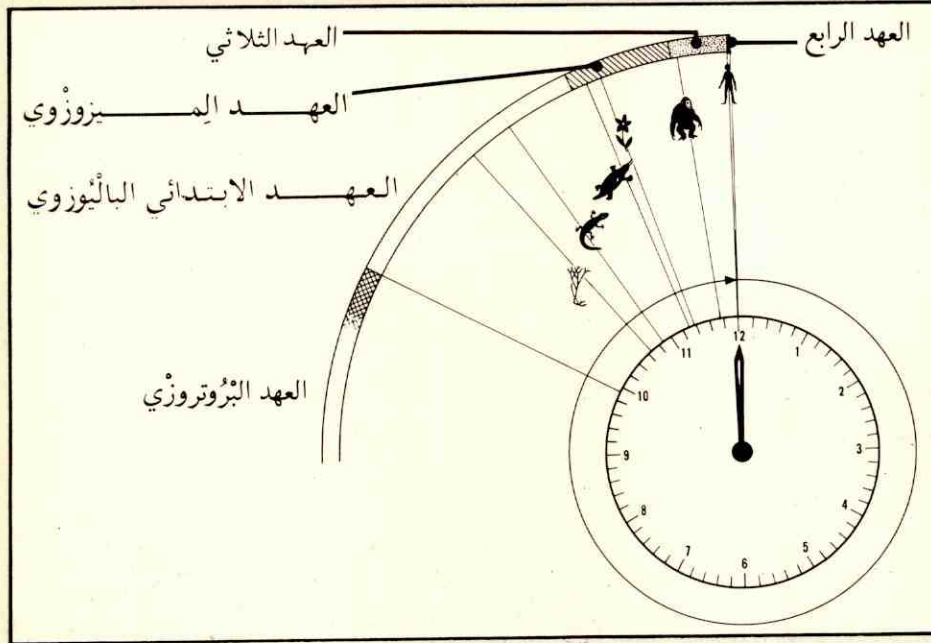 العهد الرابع
العهد الثلاثي
العهد المِيزوزْوي
العهد الابتدائي الباليُوزوي
العهد البْرُوتروزْي
12
1
2
3
4
5
6
7
8
9
10
11